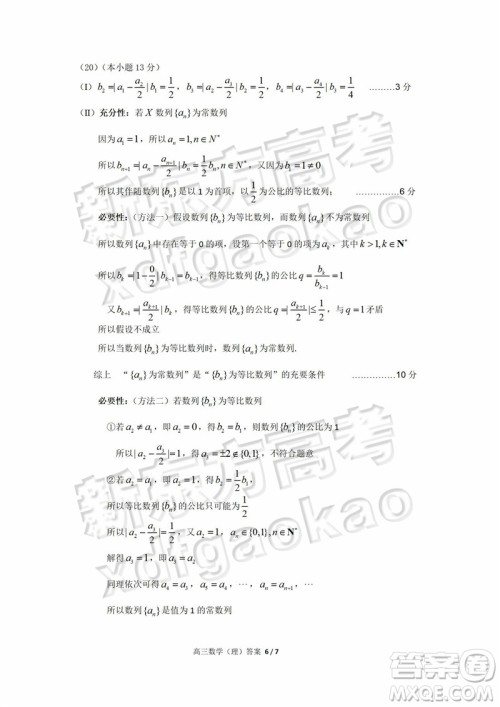 （20）（本小题 13 分）
（I） b₂=|a₁-a₂/2|b₁=1/2，b₃=|a₂-a₃/2|b₂=1/2，b₄=|a₃-a₄/2|b₃=1/4 ………3 分
（II）充分性：若 X 数列{aₙ}为常数列
因为 a₁=1，所以 aₙ=1,n∈N*
所以 bₙ₊₁=|aₙ-aₙ₊₁/2|bₙ=1/2bₙ,n∈N*，又因为 b₁=1≠0
所以其伴随数列{bₙ}是以 1 为首项，以 1/2 为公比的等比数列； ……………6 分
必要性：（方法一）假设数列{bₙ}为等比数列，而数列{aₙ}不为常数列
所以数列{aₙ}中存在等于 0 的项，设第一个等于 0 的项为 aₖ，其中 k>1,k∈N*
所以 bₖ=|1-0/2|bₖ₋₁=bₖ₋₁，得等比数列{bₙ}的公比 q=bₖ/bₖ₋₁=1
又 bₖ₊₁=|aₖ₊₁/2|bₖ，得等比数列{bₙ}的公比 q=|aₖ₊₁/2|≤1/2，与 q=1 矛盾
所以假设不成立
所以当数列{bₙ}为等比数列时，数列{aₙ}为常数列.
综上 “{aₙ}为常数列”是“{bₙ}为等比数列”的充要条件 ……………10 分
必要性：（方法二）若数列{bₙ}为等比数列
①若 a₂≠a₁，即 a₂=0，得 b₂=b₁，所以 b₃=b₂
所以|a₂-a₃/2|=1，得 a₃=±2∉{0,1}，不符合题意
②若 a₂=a₁，即 a₂=1，得 b₂=1/2b₁，
所以数列{bₙ}的公比只可能为 1/2
所以|a₂-a₃/2|=1/2，又 aₙ∈{0,1},n∈N*
解得 a₃=1，所以 a₃=a₂
同理依次可得 a₄=a₃，a₅=a₄，…，aₙ=aₙ₋₁，
所以数列{aₙ}是值为 1 的常数列
高三数学（理）答案 6 / 7
新东方高考
xdfgaokao
新东方高考
xdfgaokao